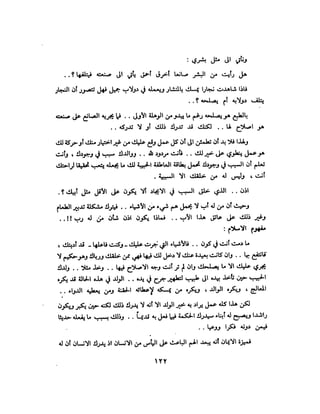 ونأتي الى مثل بشري :
هل رأيت من البشر صانعا أخرق أحمق يأتي الى صنعته فيتلفها ؟ . .
فاذا شاهدت نجارا يمسك بالمنشار ويعمله في دولاب جميل فهل تتصور أن النجار
يتلف دولابه أم يصلحه ؟ . .
بالطبع هو يصلحه رغم ما يبدو من الوهلة الأولى . . فما يجريه الصانع على صنعته
هو اصلاح لها . . لكنك قد تدرك ذلك أو لا تدركه . .
وهذا فلا بد أن تطمئن الى أن كل عمل وقع عليك من غير اختيار منك أو حركة لك
هو عمل ينطوي على خير لك . . فأنت مردود لله . . ووالدك سبب في وجودك ، وأنت
تعلم أن السبب في وجودك تحمل بطاقة العاطفة الخلقية لك ما يجعله يتعب تحقيقا لراحتك
أنت ، وليس له من خلقك الا السببية .
اذن . . الذي خلق السبب في الايجاد ألا يكون على الأقل مثل أبيك ؟ .
وحيث أن من له أب لا يحمل هم شيء من الأشياء . . فيترك مشكلة تدبير الطعام
وغير ذلك على عاتق هذا الأب . . فماذا يكون اذن شأن من له رب ؟ . . !!
مفهوم الاسلام :
ما دمت أنت في كون . . فالأشياء التي تجرت عليك . . وكنت فاعلها . . قد أديتك ،
فاقتنع بها . . وان كانت بعيدة عنك لا دخل لك فيها فهي ممن خلقك وربك وهو حكيم لا
يجري عليك الا ما يصلحك وان لم تر أنت وجه الاصلاح فيها . . وخذ مثلا . . ولدك
الحبيب حين تأخذ بيده الى طبيب لتطهير جرح في يده . . الولد في هذه الحالة قد يكره
المعالج ، ويكره الوالد ، ويكره من يمسكه لإعطائه الحقنة ومن يعطيه الدواء . .
لكن هذا كله عمل يراد به خير الولد الا أنه لا يدرك ذلك لكنه حين يكبر ويكون
راشدا ويصبح له أبناء سيدرك الحكمة فيما فعل به قديما . . وذلك بسبب ما يفعله حديثا
فيمن دونه فكرا ووعيا . .
فميزة الايمان أنه يبعد الهم الباعث على اليأس من الانسان اذ يدرك الانسان أن له أن
١٢٢